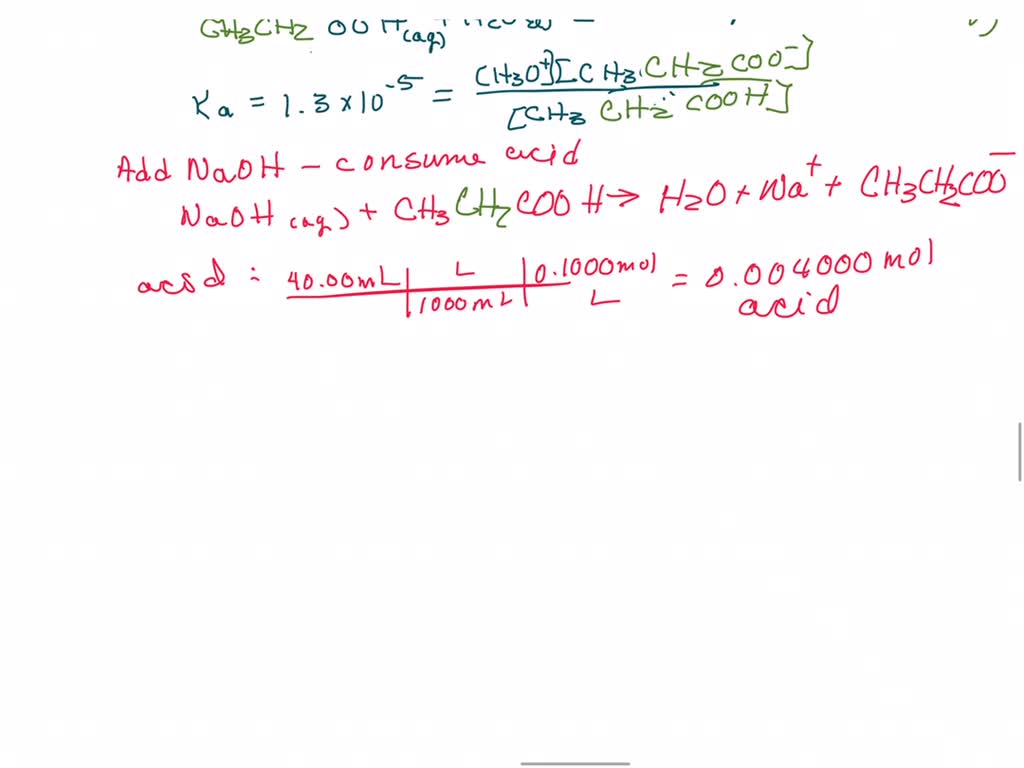 CH3CH2 OOH(aq) +
Ka = 1.3 x 10^-5 = [H3O+][CH3 CH2 COO-] / [CH3 CH2 COOH]
Add NaOH - consume acid
NaOH (aq) + CH3CH2COOH → H2O + Na+ + CH3CH2COO-
acid : 40.00mL | L | 0.1000mol = 0.004000 mol
1000mL | L acid